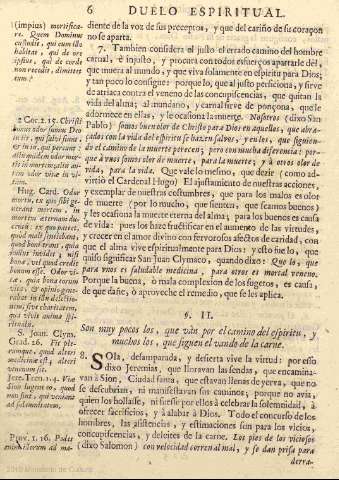 6 DUELO ESPIRITUAL.
(impius) mortifica-
re. Quem Dominus
custodit, qui cum illo
habitat, qui de ore
ipsius, qui de corde
non recedit, dimittet
eum?
2 Cor. 2. 15. Christi
bonus odor sumus Deo
in iis, qui salvi fiunt,
& in iis, qui pereunt:
aliis quidem odor mor-
tis in mortem: aliis au-
tem odor vitæ in vi-
tam.
Hug. Card. Odor
mortis, ex quo sibi ge-
nerant mortem, in
mortem æternam du-
cens: ex quo patet,
quod mali
quod bona
nullus invidet, nisi
bono, vel quod credit
bonum esse. Odor vi-
tæ, quia bona eorum
vitæ, & opinio gene-
rabat in eis
S. Joan. Clym.
Grad. 26. Fit ple-
rumque, quod alteri
medicina est, alteri
venenum esse.
Jere. Tren. 1. 4. Viæ
Sion lugent eo, quod
non sint, qui veniant
ad solemnitatem.
Prov. 1. 16. Pedes
diente de la voz de sus preceptos, y que del cariño de su coraçon
no se aparta.
7. Tambien considera el justo el errado camino del hombre
carnal, è injusto, y procura con todos esfuerços apartarle dèl,
que muera al mundo, y que viva solamente en espiritu para Dios;
y tan poco lo consigue: porque lo, que al justo perficiona, y sirve
de atriaca contra el veneno de las concupiscencias, que quitan la
vida del alma; al mundano, y carnal sirve de ponçoña, que le
adormece en ellas, y le ocasiona la muerte. Nosotros (dixo San
Pablo) somos buen olor de Christo para Dios en aquellos, que abra-
çados con la vida del espiritu se hazen salvos, y en los, que siguien-
do el camino de la muerte perecen; pero con mucha diferencia: por-
que à vnos somos olor de muerte, para la muerte; y à otros olor de
vida, para la vida. Que vale lo mesmo, que dezir (como ad-
virtiò el Cardenal Hugo) El ajustamiento de nuestras acciones,
y exemplar de nuestras costumbres, que para los malos es olor
de muerte (por lo mucho, que sienten, que seamos buenos)
y les ocasiona la muerte eterna del alma; para los buenos es causa
de vida: pues los haze fructificar en el aumento de las virtudes,
y crecer en el amor divino con fervorosos afectos de caridad, con
que el alma vive espiritualmente para Dios: y esto fuè lo, que
quiso significar San Juan Clymaco, quando dixo: Que lo, que
para vnos es saludable medicina, para otros es mortal veneno.
Porque la buena, ò mala complexion de los sugetos, es causa
de que dañe, ò aproveche el remedio, que se les aplica.
§. II.
Son muy pocos los, que vàn por el camino del espiritu, y
muchos los, que siguen el vando de la carne.
8. SOla, desamparada, y desierta vive la virtud: por esso
dixo Jeremias, que lloravan las sendas, que encamina-
van à Sion, Ciudad santa, que estavan llenas de yerva, que no
se descubrian, ni manifestavan sus caminos; porque no avia,
quien los hollasse, ni fuesse por ellos à celebrar la solemnidad, à
ofrecer sacrificios, y à alabar à Dios. Todo el concurso de los
hombres, las asistencias, y estimaciones son para los vicios,
concupiscencias, y deleites de la carne. Los pies de los viciosos
(dixo Salomon) con velocidad corren al mal, y se dan prisa para
derra-
2010 Ministerio de Cultura